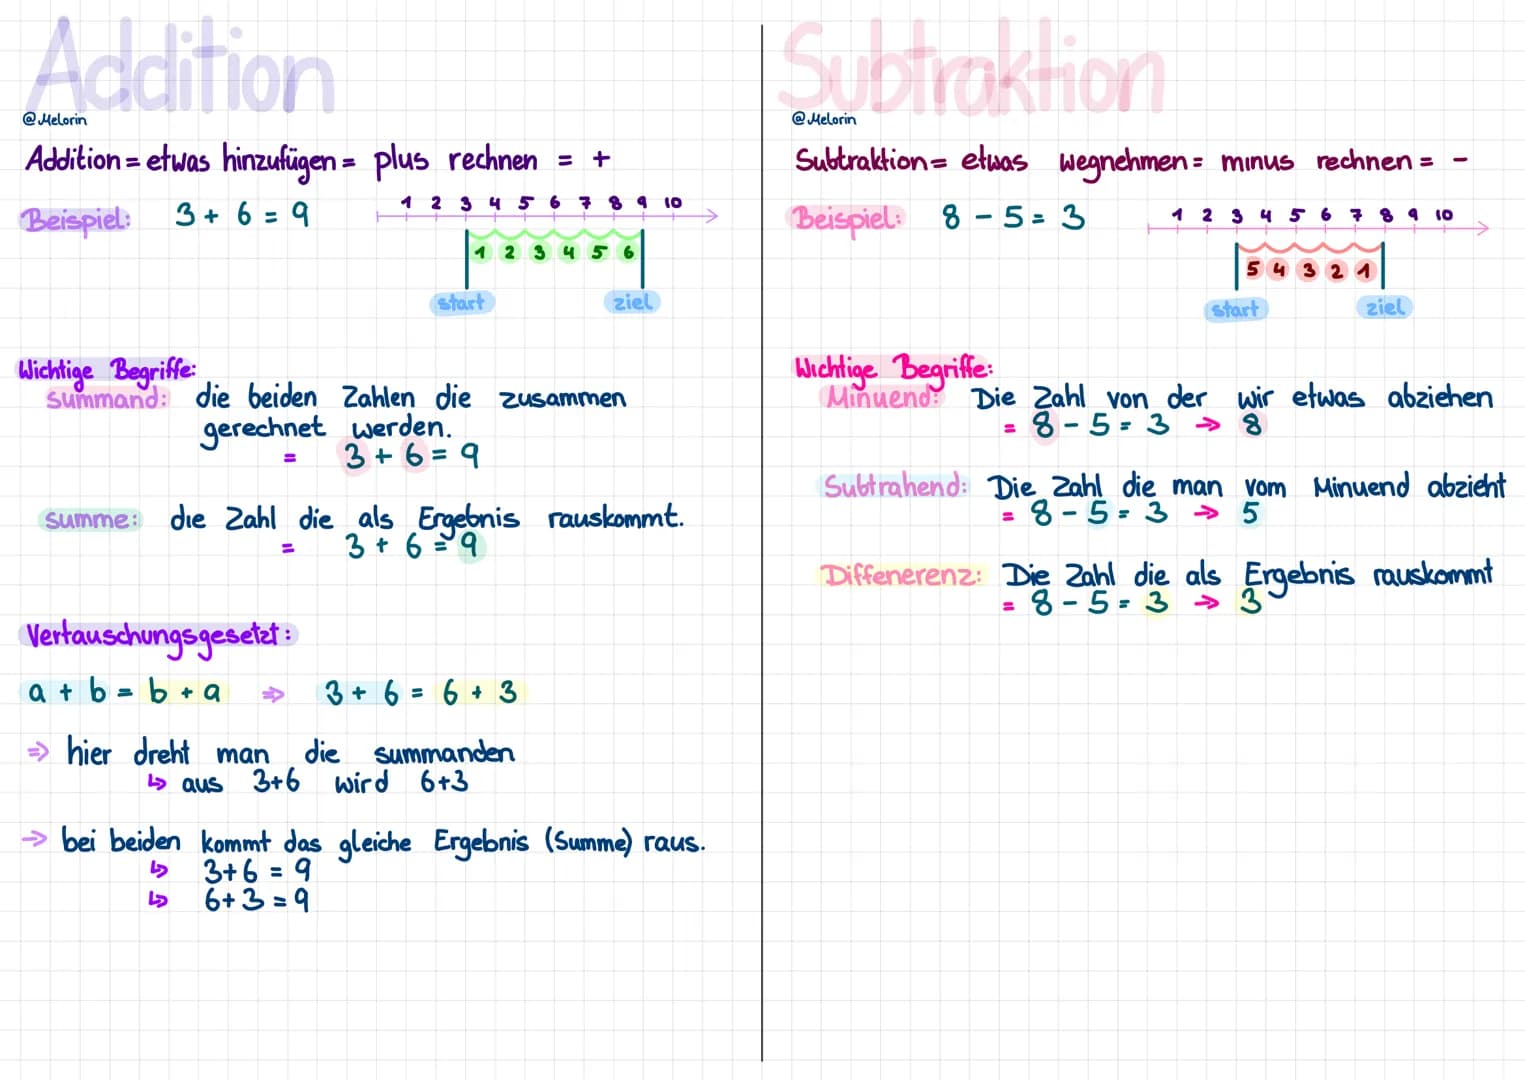 Addition
@Melorin
Addition = etwas hinzufügen = plus rechnen = +
Beispiel: 3 + 6 = 9
1 2 3 4 5 6 7 8 9 10
1 2 3 4 5 6
start ziel
Wichtige Begriffe:
Summand: die beiden Zahlen die zusammen
gerechnet werden.
= 3 + 6 = 9
Summe: die Zahl die als Ergebnis rauskommt.
= 3 + 6 = 9
Vertauschungsgesetzt:
a + b = b + a ⇒ 3 + 6 = 6 + 3
⇒ hier dreht man die summanden
↳ aus 3+6 wird 6+3
→ bei beiden kommt das gleiche Ergebnis (Summe) raus.
↳ 3+6 = 9
↳ 6+3 = 9
Subtraktion
@Melorin
Subtraktion = etwas wegnehmen = minus rechnen = -
Beispiel: 8 - 5 = 3
1 2 3 4 5 6 7 8 9 10
5 4 3 2 1
start ziel
Wichtige Begriffe:
Minuend: Die Zahl von der wir etwas abziehen
= 8 - 5 = 3 → 8
Subtrahend: Die Zahl die man vom Minuend abzieht
= 8 - 5 = 3 → 5
Diffenerenz: Die Zahl die als Ergebnis rauskommt
= 8 - 5 = 3 → 3